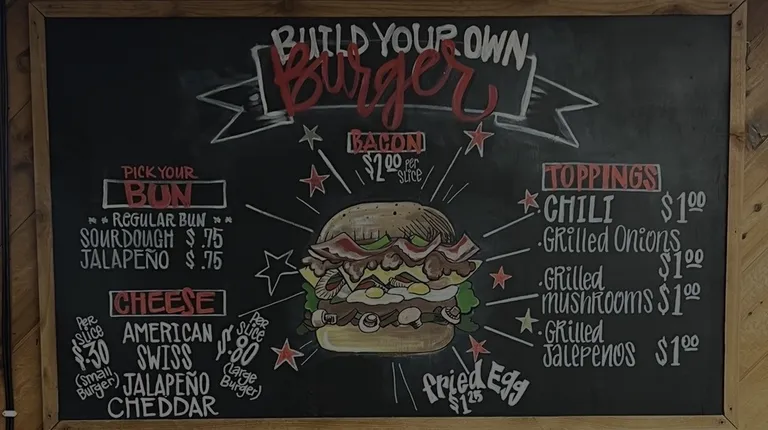 BUILD YOUR OWN
Burger
BACON
$2.00 PER SLICE
PICK YOUR
BUN
REGULAR BUN
SOURDOUGH $.75
JALAPEÑO $.75
CHEESE
AMERICAN
SWISS
JALAPEÑO
CHEDDAR
PER SLICE
$.30
(small Burger)
PER SLICE
$.80
(large Burger)
TOPPINGS
CHILI $1.00
Grilled Onions
$1.00
Grilled
mushrooms $1.00
Grilled
Jalepenos $1.00
fried EGG
$1.25